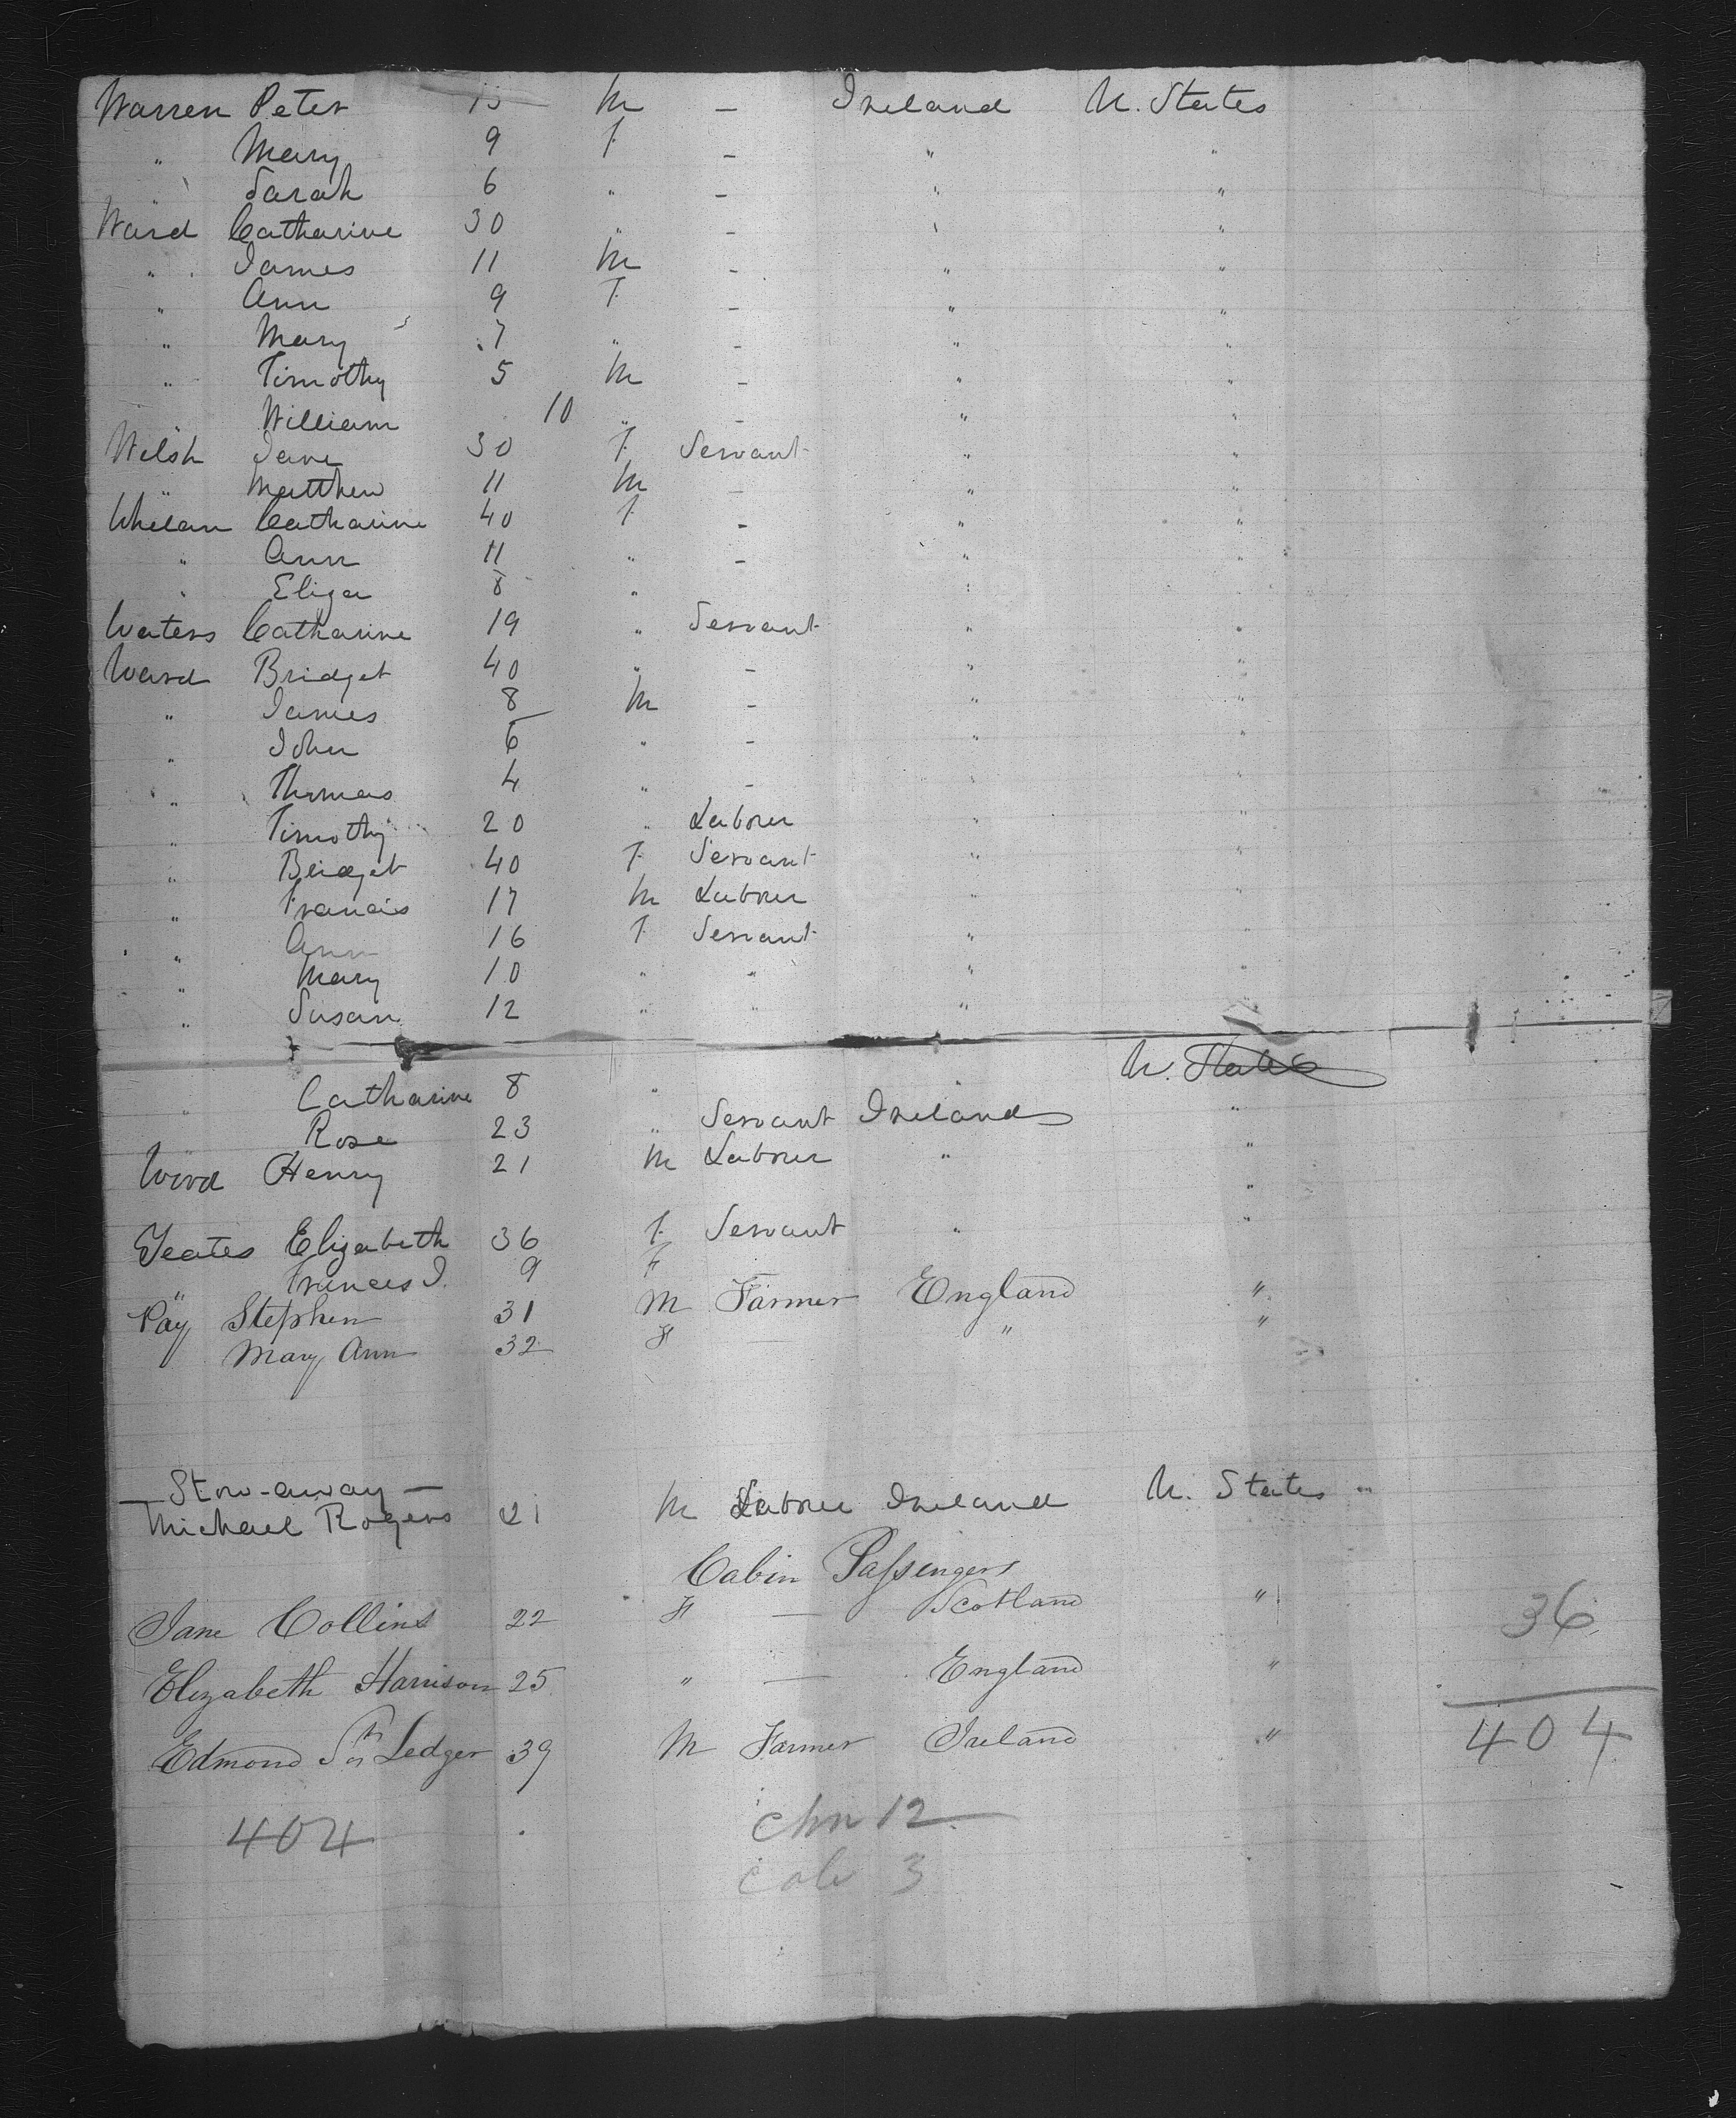 Warren Peter 13 M – Ireland U. States
" Mary 9 F – " "
" Sarah 6 " – " "
Ward Catharine 30 " – " "
" James 11 M – " "
" Ann 9 F – " "
" Mary 7 " – " "
" Timothy 5 M – " "
" William 10 " – " "
Welsh Jane 30 F Servant " "
" Matthew 11 M – " "
Whelan Catharine 40 F – " "
" Ann 11 " – " "
" Eliza 8 " " "
Waters Catharine 19 " Servant " "
Ward Bridget 40 " – " "
" James 8 M – " "
" John 6 " – " "
" Thomas 4 " – " "
" Timothy 20 " Labourer " "
" Bridget 40 F Servant " "
" Francis 17 M Labourer " "
" Ann 16 F Servant " "
" Mary 10 " " " "
" Susan 12 " " "
U. States
" Catharine 8 " "
" Rose 23 " Servant Ireland "
Wood Henry 21 M Labourer " "
Yeates Elizabeth 36 F Servant " "
" Frances J. 9 F
Pay Stephen 31 M Farmer England "
Mary Ann 32 F — " "
Stow-away —
Michael Rogers 21 M Labourer Ireland U. States "
Cabin Passengers
Jane Collins 22 F — Scotland "
36
Elizabeth Harrison 25 " — England "
Edmond St Ledger 39 M Farmer Ireland "
404
404
chn 12
cab 3